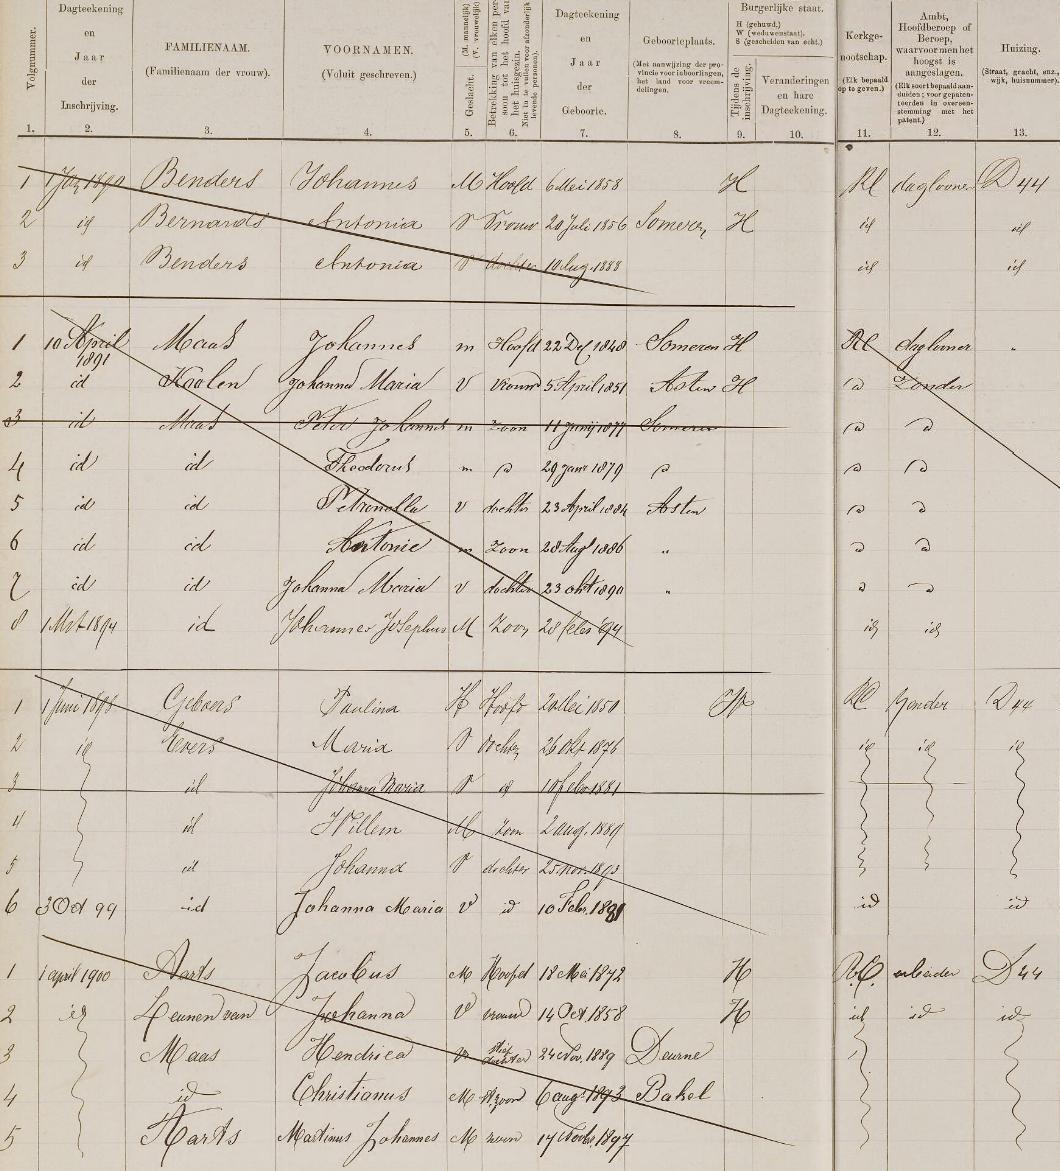 Volgnummer.
Dagteekening
en
Jaar
der
Inschrijving.
FAMILIENAAM.
(Familienaam der vrouw).
VOORNAMEN.
(Voluit geschreven.)
Geslacht.
(M. mannelijk)
(V. vrouwelijk)
Dagteekening
en
Jaar
der
Geboorte.
Geboorteplaats.
(Met aanwijzing der pro-
vincie voor inboorlingen,
het land voor vreem-
delingen.
Burgerlijke staat.
H (gehuwd.)
W (weduwenstaat).
S (gescheiden van echt.)
Tijdens de
inschrijving.
Veranderingen
en hare
Dagteekening.
Kerkge-
nootschap.
(Elk bepaald
op te geven.)
Ambt,
Hoofdberoep of
Beroep,
waarvoor men het
hoogst is
aangeslagen.
Huizing.
(Straat, gracht, enz.,
wijk, huisnummer).
1. 2. 3. 4. 5. 6. 7. 8. 9. 10. 11. 12. 13.
1 1 Jan 1890 Benders Johannes M Hoofd 6 Mei 1858 H RC daglooner D 44
2 id Bernards Antonia V Vrouw 20 Juli 1856 Someren H id id
3 id Benders Antonia V dochter 10 Aug. 1888 id id
1 10 April 1891 Maas Johannes m Hoofd 22 Dec 1848 Someren H RC daglooner "
2 id Koolen Johanna Maria V vrouw 5 April 1851 Asten H " Zonder
3 id Maas Peter Johannes m Zoon 11 Junij 1877 Someren " "
4 id id Theodorus m " 29 janr 1879 " " "
5 id id Petronella V dochter 23 April 1884 Asten " "
6 id id Antonie m Zoon 28 Augt 1886 " " "
7 id id Johanna Maria V dochter 23 okt 1890 " " "
8 1 Mrt 1894 id Johannes Josephus M Zoon 28 febr 94 id id
1 1 Juni 1898 Geboers Paulina Hoofd 20 Mei 1850 W RC Zonder D 44
2 id Evers Maria V dochter 26 Okt 1876 id id id
3 id Johanna Maria V id 10 febr 1881
4 id Willem M zoon 2 aug. 1889
5 id Johanna V dochter 25 nov. 1893
6 3 Oct 99 id Johanna Maria V id 10 Febr. 1881 id id
1 1 april 1900 Aarts Jacobus M Hoofd 18 Mei 1872 H R.C. arbeider D 44
2 id Leunen van Johanna V vrouw 14 Oct. 1858 H id id id
3 Maas Hendrica V stiefdochter 24 Nov. 1889 Deurne
4 id Christianus M st.zoon 6 aug. 1893 Bakel
5 Aarts Martinus Johannes M zoon 17 Novbr. 1897